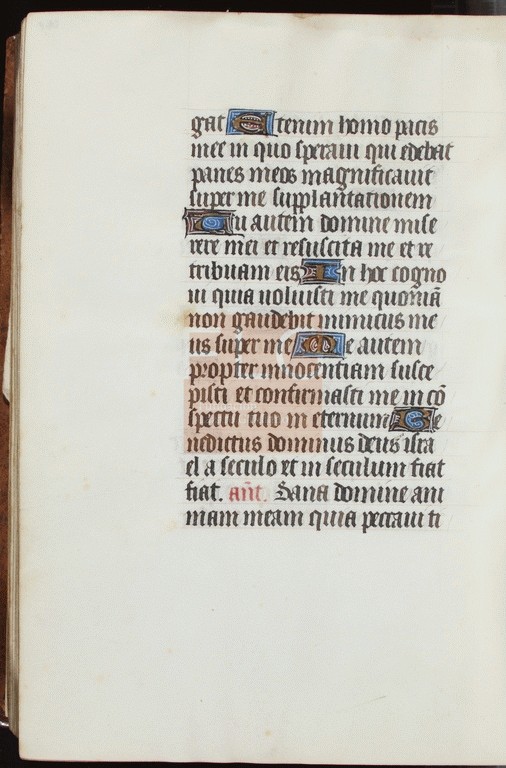 gat Etenim homo pacis
mee in quo speraui qui edebat
panes meos magnificauit
super me supplantationem
Tu autem domine mise
rere mei et resuscita me et re
tribuam eis In hoc cogno
ui quia uoluisti me quoniā
non gaudebit inimicus me
us super me Me autem
propter innocentiam susce
pisti et confirmasti me in cō
spectu tuo in eternum Be
nedictus dominus deus isra
el a seculo et in seculum fiat
fiat. añt. Sana domine ani
mam meam quia peccaui ti